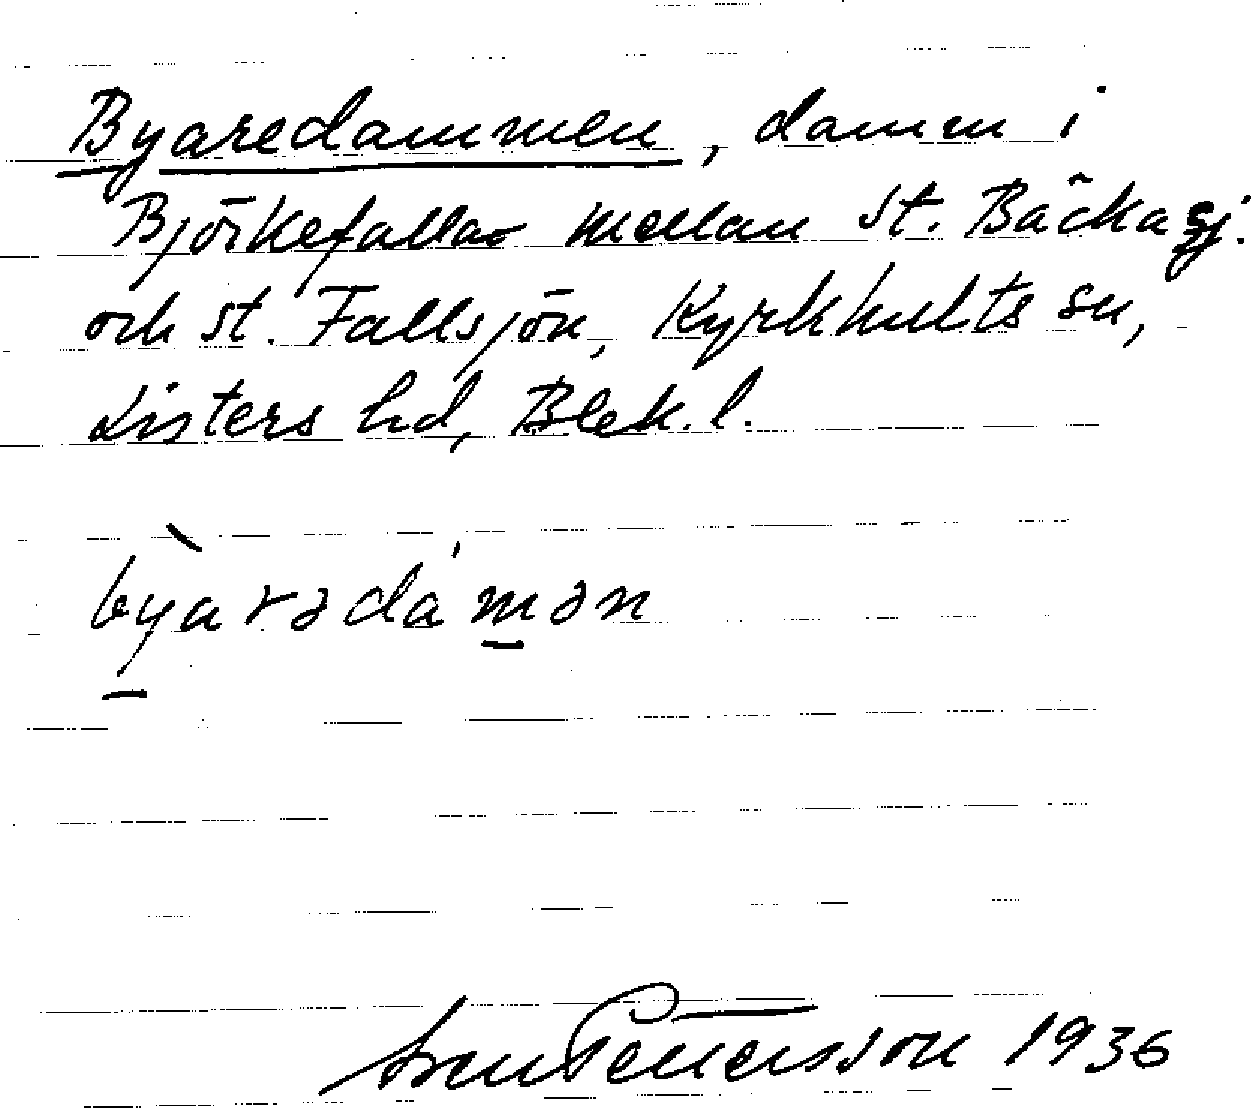 Byaredammen, damm i
Björkefallao mellan St. Bäckasj.
och St. Fallsjön, Kyrkhults sn,
Listers hd, Blek. l.
bỳarədámən
Sven Petersson 1936